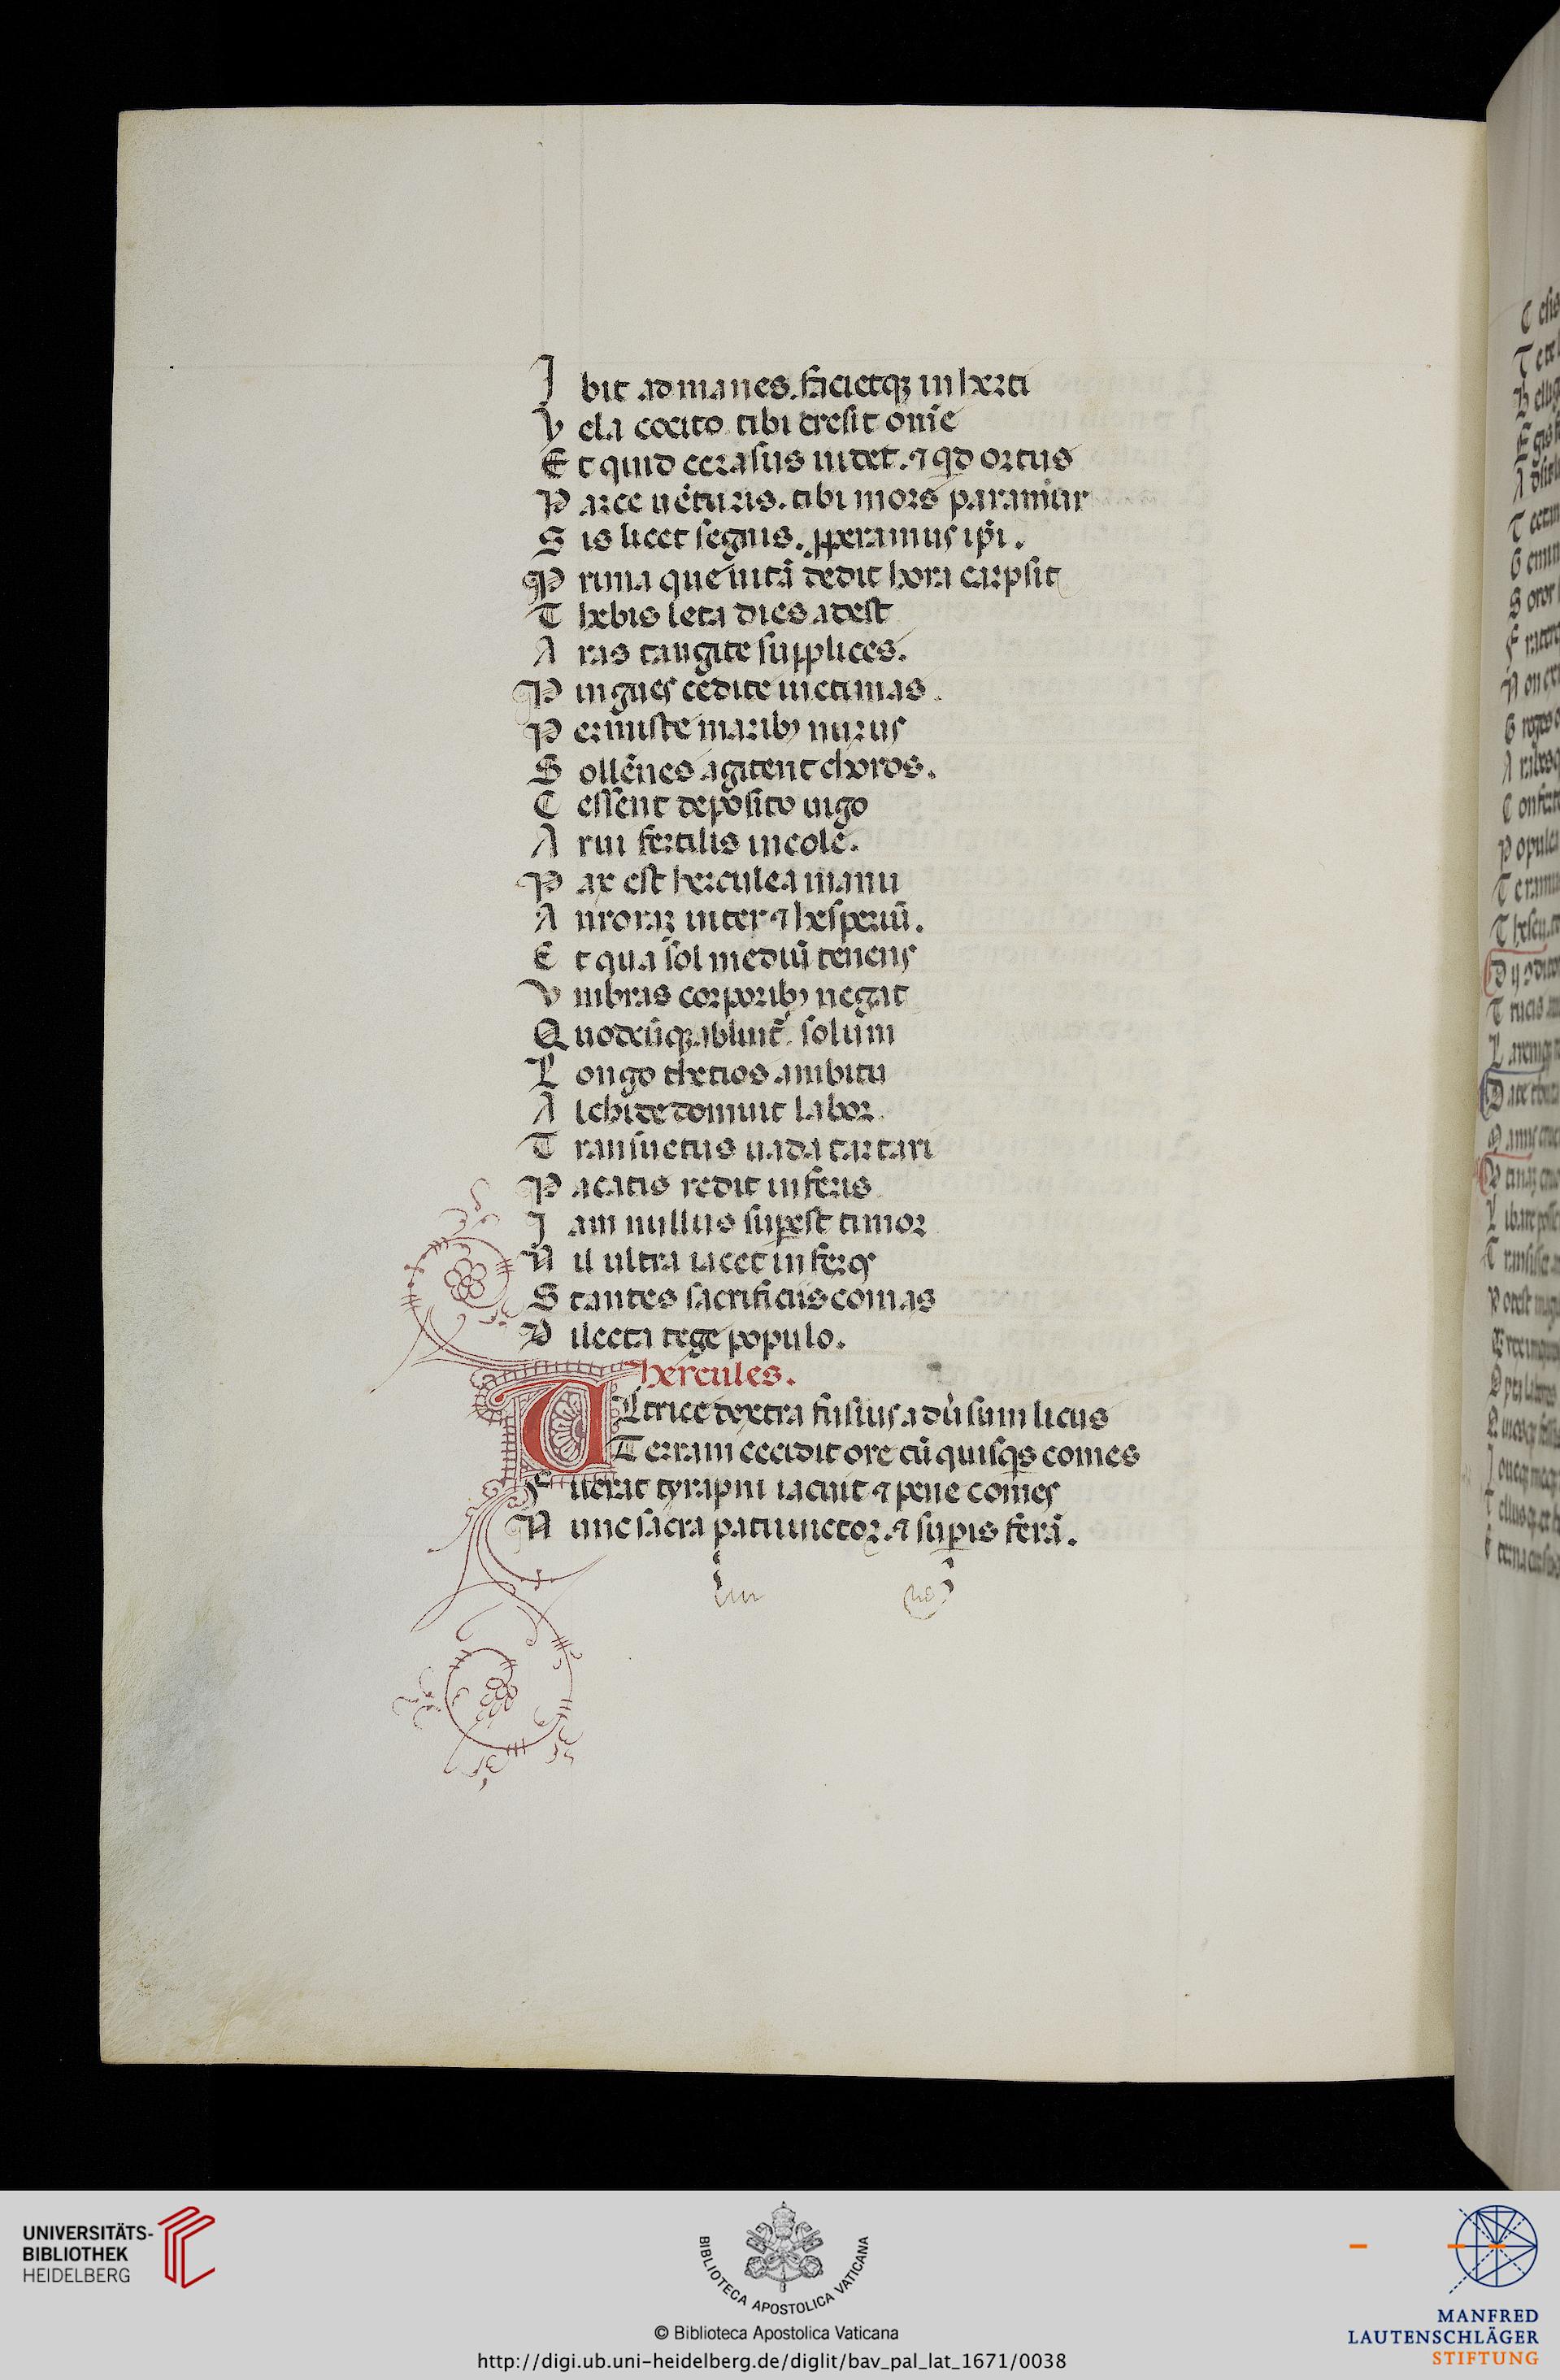 I bit ad manes. facietq; in herti
V ela cocito tibi cresit om̄e
E t quid ceꝛasus uidet. ⁊ qd ortus
P arce uēturis. tibi mors paramur
S is licet segnis. ꝓperamus ip̄i.
P rima que uitā dedit hora carpsit
T hebis leta dies adest
A ras tangite supplices.
P ingues cedite uictimas.
P ermiste marib; nurus
S ollēnes agitent choros.
C essent deposito iugo
A rui fertilis incole.
P ax est herculea manu
A uroraꝫ inter ⁊ hesperiū.
E t qua sol mediū tenens
V mbras corporib; negat
Q uodcūq; abluit̄ solum
L ongo thetios ambitu
A lchide domuit labor
T ransuectus uada tartari
P acatis redit inferis
I am nullus suꝑest timor
N il ultra iacet inferos
S tantes sacrificiis comas
D ilecta tege populo.
hercules.
ULtrice dextra fusus aduersum licus
Terram cecidit ore cū quisqs comes
F uerat tyrapni iacuit ⁊ pene comes
N unc sacra patri uictor. ⁊ suꝑis ferā.
UNIVERSITÄTS-
BIBLIOTHEK
HEIDELBERG
BIBLIOTECA APOSTOLICA VATICANA
© Biblioteca Apostolica Vaticana
http://digi.ub.uni-heidelberg.de/diglit/bav_pal_lat_1671/0038
MANFRED
LAUTENSCHLÄGER
STIFTUNG